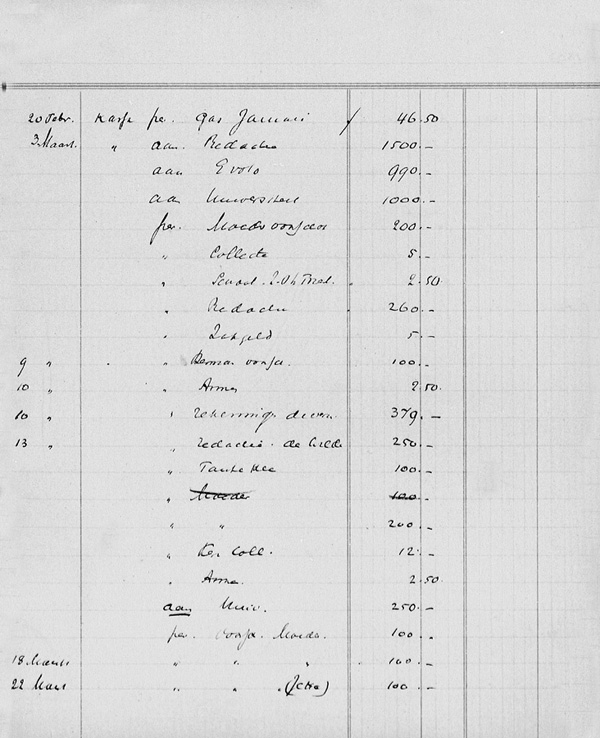 20 Febr. Kassa per. Gas Januari f 46.50
3 Maart. " aan Redactie 1500.-
aan 990.-
aan Universiteit 1000.-
per. Moeder voorjaar 200.-
" Collecte 5.-
" 2.50
" Redactie 260.-
" Zakgeld 5.-
9 " " Herman 100.-
10 " " Armen 2.50
10 " " rekeningen diversen 379.-
13 " " redactie de Gids 250.-
" Tante 100.-
" Moeder 100.-
" " 200.-
" Ker. Coll. 12.-
" Armen 2.50
aan Univ. 250.-
per. Moeder 100.-
18 Maart " " " 100.-
22 Maart " " " 100.-